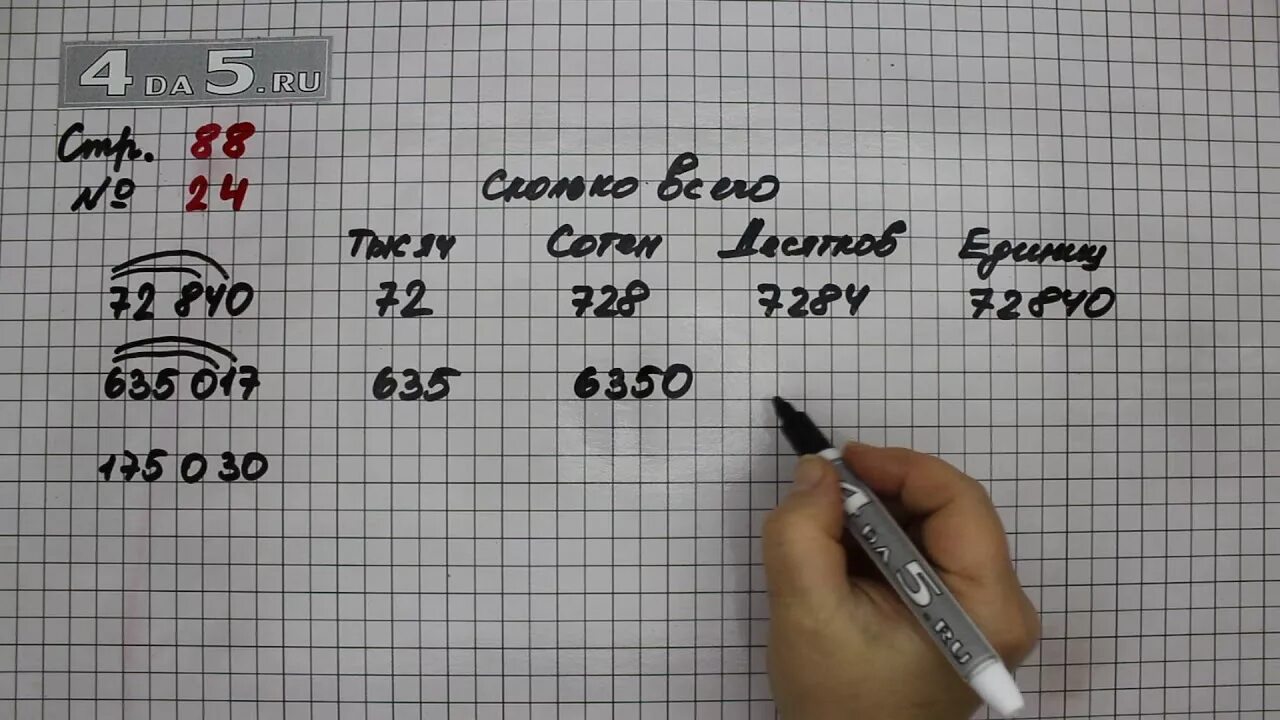 4DA5.RU
Стр. 88
№ 24
Сколько всего
Тысяч Сотен Десятков Единиц
72 840 72 728 7284 72840
635 017 635 6350
175 030
4DA5.RU